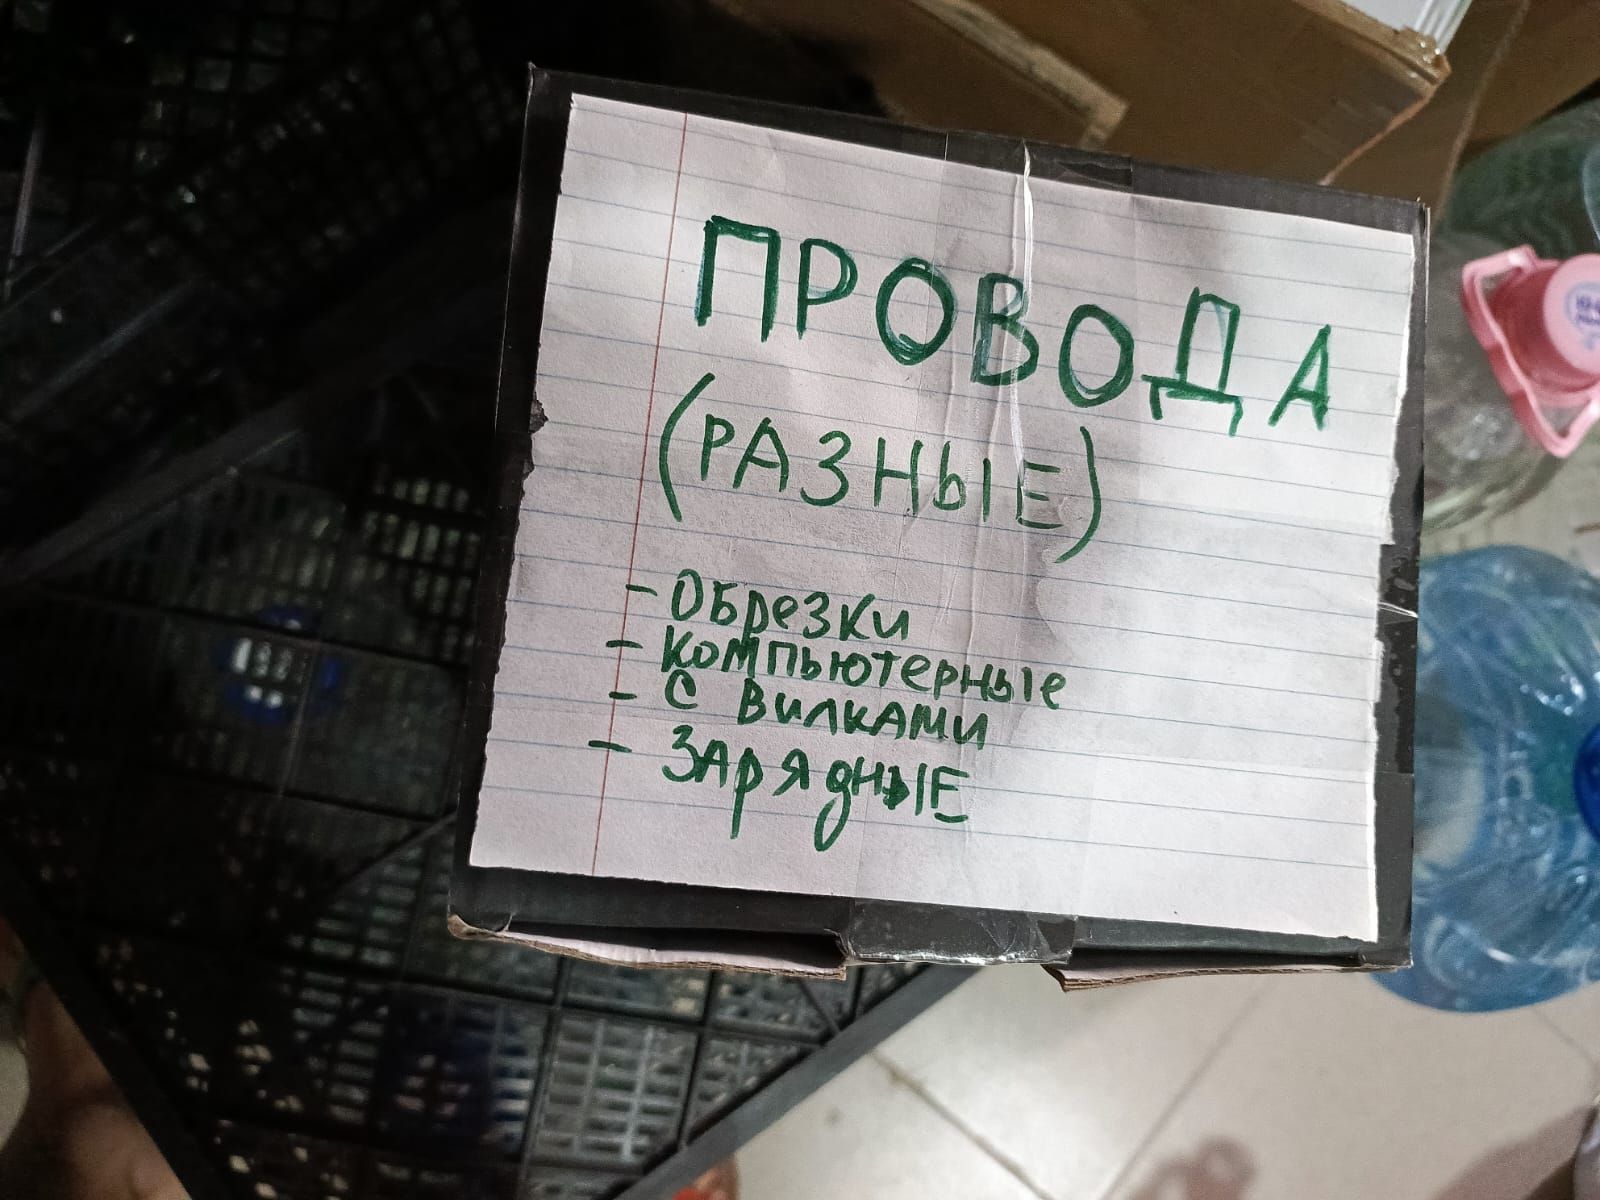 ПРОВОДА
(РАЗНЫЕ)
- Обрезки
- Компьютерные
- С Вилками
- Зарядные